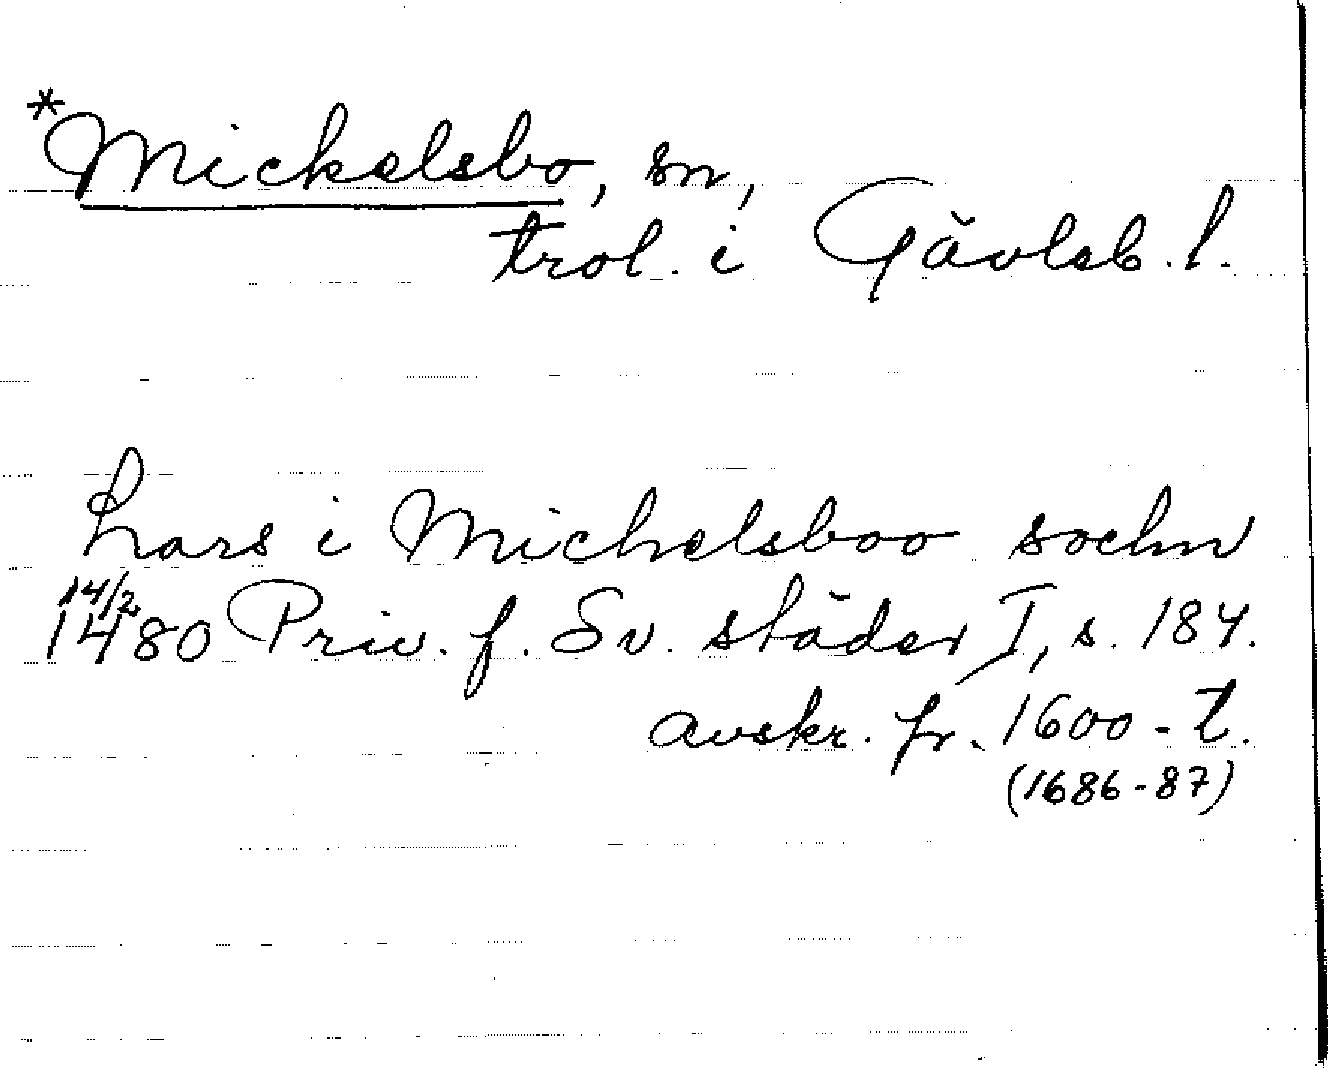 *Mickelsbo, sn,
trol. i Gävleb. l.
Lars i Michelsboo sochn
14/2
1480 Priv. f. Sv. städer I, s. 184.
avskr. fr. 1600-t.
(1686-87)